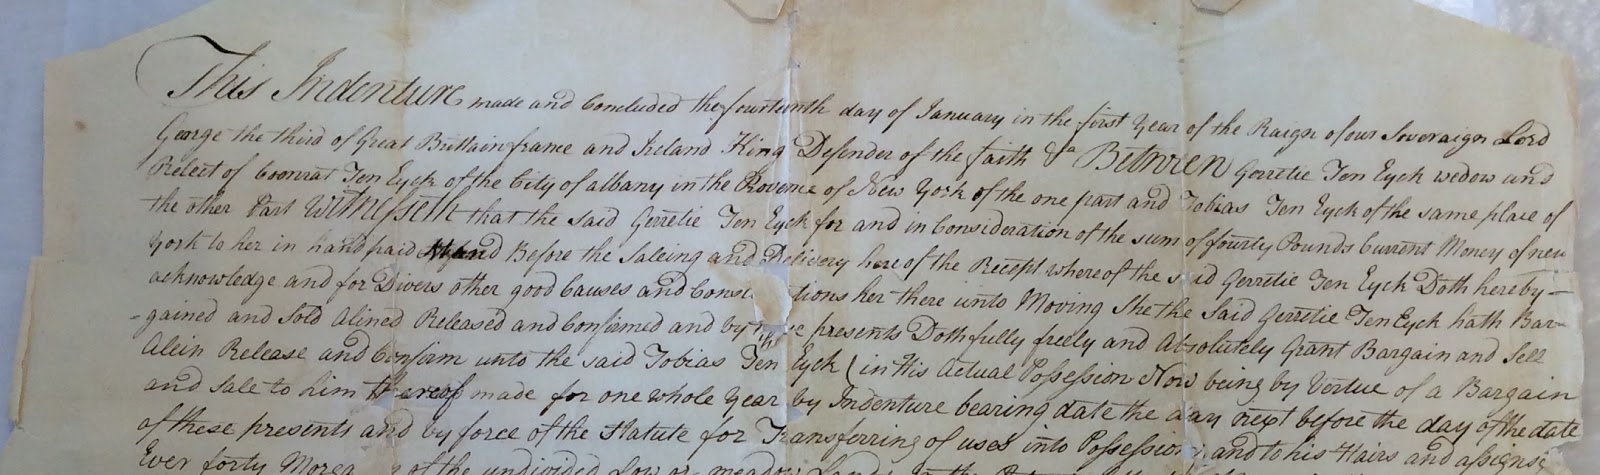 This Indenture made and Concluded the fourteenth day of January in the first Year of the Raign of our Soveraign Lord
George the third of Great Brittain france and Ireland King Defender of the faith &a Between Gerretie Ten Eyck wedow and
Relect of Coonrat Ten Eyck of the City of albany in the Provence of New York of the one part and Tobias Ten Eyck of the same place of
the other Part Witnesseth that the said Gerretie Ten Eyck for and in Consideration of the sum of fourty Pounds Current Money of new
York to her in hand paid and Before the Saleing and Delivery here of the Receipt where of the said Gerretie Ten Eyck Doth hereby
acknowledge and for Divers other good Causes and Consi tions her there unto Moving She the Said Gerretie Ten Eyck hath Bar-
-gained and Sold Alined Released and Confirmed and by presents Doth fully freely and Absolutely Grant Bargain and Sell
Alein Release and Confirm unto the said Tobias Ten Eyck (in His Actual Possession Now being by Vertue of a Bargain
and Sale to him thereof made for one whole Year by Indenture bearing date the day next before the day of the date
of these presents and by force of the Statute for Transferring of uses into Possession and to his Hairs and assigns
Ever forty of the undivided Low or meadow